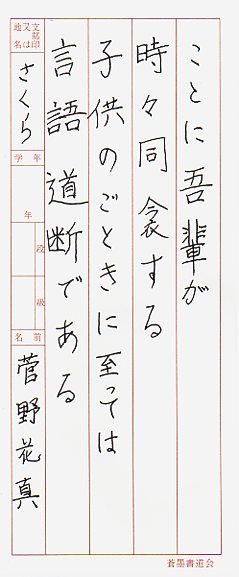 ことに吾輩が
時々同衾する
子供のごときに至っては
言語道断である
支部印又は地名
さくら
学年
年
段
級
名前
菅野花真
蒼墨書道会